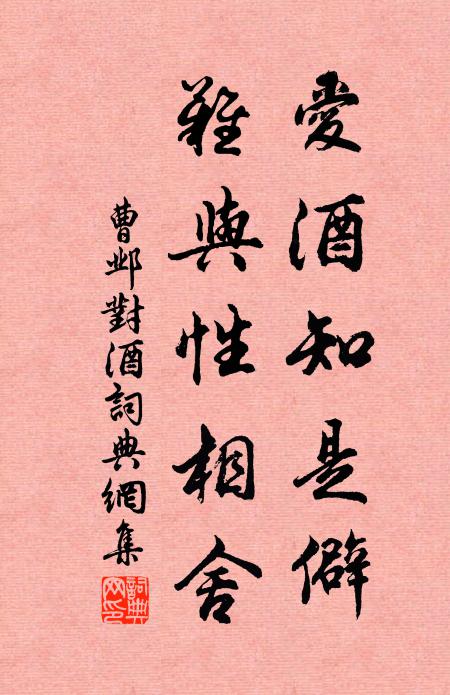 愛酒知是僻
難與性相舍
曹邺對酒詞典網集
詞典网印